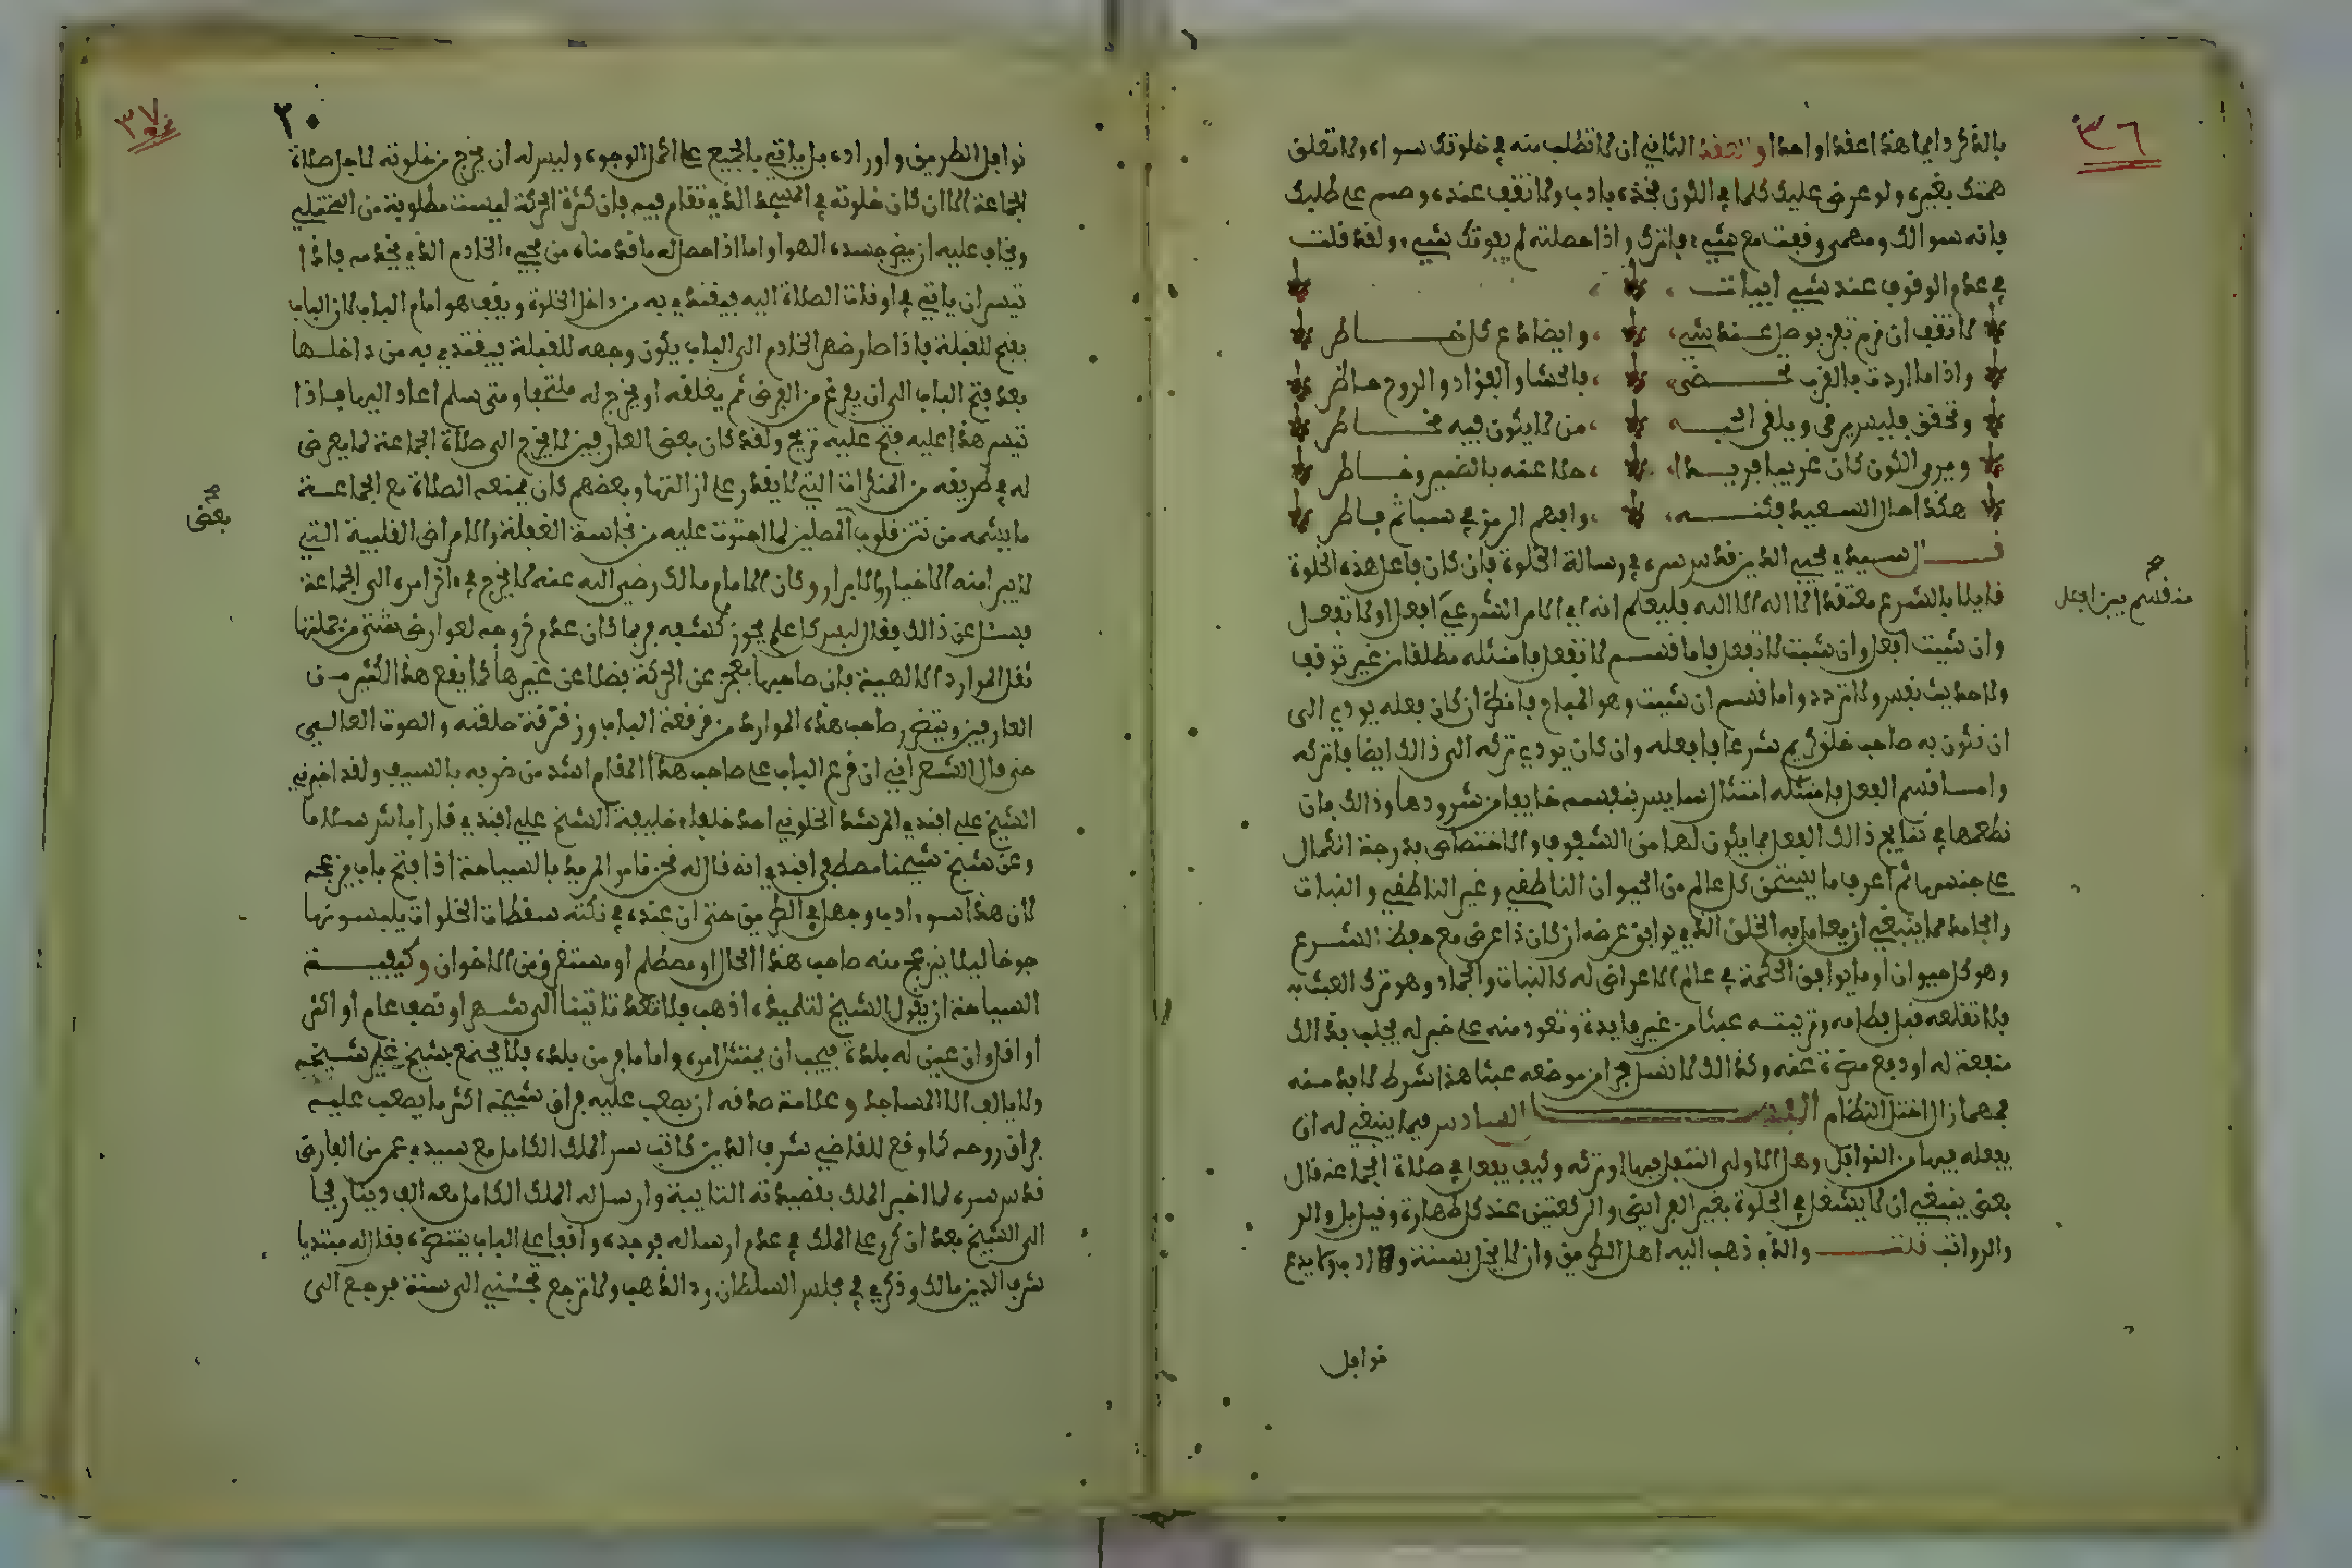 ٣٦
بالذكر دايما هذا عقدا واحدا والعقد الثاني ان لا تطلب منه في خلوتك سواه ولا تعلق
همتك بغيره ولو عرض عليك كلما في الكون فخذه بادب ولا تقف عنده وصمم على طلبك
فانه سوالك ومهمى وقفت مع شيء فاتك واذا حصلته لم يفوتك شيء ولقد قلت
في عدم الوقوف عند شيء ابيات
لا تقف ان رمت تفز بوصل عند شيء وايضا دع كل خاطر
واذا ما اردت بالقرب تحضى فالحشا والفؤاد والروح خاطر
وتحقق فليس يرقى ويلقى من لا يكون فيه مخاطر
ويرى الكون كان غريبا فريدا
هكذا حال السعيد فكنه وافهم الرمز في سباتم باطر
قال سيدي محيي الدين قدس سره في رسالة الخلوة فان كان فاعل هذه الخلوة
قايلا بالشرع معتقدا لا اله الا الله فليعلم انه في الامر الشرعي افعل او لا تفعل
وان شيت افعل وان شيت لا تفعل فاما قسم لا تفعل فامتثله مطلقا من غير توقف
ولا حديث نفس ولا تردد واما قسم ان شيت وهو المباح فانظر ان كان فعله يودي الى
ان تكون به صاحب خلق كريم شرعا فافعله وان كان يودي تركه الى ذالك ايضا فاتركه
واما قسم الفعل فامتثله امتثال سايس بنفسه خايفا من شرودها وذالك بان
تطعمها في نتايج ذالك الفعل مما يكون لها من الشفوف والاختصاص بدرجة الكمال
على جنسها ثم اعرف ما يستحق كل عالم من الحيوان الناطقي وغير الناطقي والنبات
والجامد مما ينبغي ان يعامل به الخلق الذي يوافق غرضه ان كان ذا غرض مع حفظ الشرع
وهو كل حيوان او ما يوافق الحكمة في عالم الاعراض له كالنبات والجماد وهو ترك العبث به
فلا تقلعه قبل فطامه وتربيته عبثا من غير فايدة وتعود منه على خير له يجلب بذالك
منفعة له او دفع مضرة عنه وكذالك لا تفسل حجرا من موضعه عبثا هذا شرط لا بد منه
فمهما زال اختل النظام الفصل السادس فيما ينبغي له ان
يفعله فيها من النوافل وهل الاولى التنفل فيها او تركه وكيف يفعل في صلاة الجماعة قال
بعض ينبغي ان لا يشتغل في الخلوة بغير الفرايض والركعتين عند كل طهارة وقيل بل والر
والرواتب قلت والذي ذهب اليه اهل الطريق وان لا يخل بسنة ولا ادب ولا يدع
نوافل
منقسم بين افعل
٣٧
٢٠
نوافل الطريق واوراده بل ياتي بالجميع على اكمل الوجوه وليس له ان يخرج من خلوته لاجل صلاة
الجماعة الا ان كان خلوته في المسجد الذي تقام فيه فان كثرة الحركة ليست مطلوبة من المختلي
ويخاف عليه ان يضر جسده الهوا واما اذا حصل له ما قدمناه من مجيء الخادم الذي يخدمه فاذا
تيسر ان ياتي في اوقات الصلاة اليه فيقتدي به من داخل الخلوة ويقف هو امام الباب لان الباب
يفتح للقبلة فاذا صار ظهر الخادم الى الباب يكون وجهه للقبلة فيقتدي به من داخلها
بعد فتح الباب الى ان يفرغ من الفرض ثم يغلقه او يخرج له ملتحفا ومتى سلم اعاد اليها فاذا
تيسر هذا عليه فتح عليه تريح ولقد كان بعض العارفين لا يخرج الى صلاة الجماعة لما يعرض
له في طريقه من المنكرات التي لا يقدر على ازالتها وبعضهم كان يمنعه الصلاة مع الجماعة
ما يشمه من نتن قلوب المصلين لما احتوت عليه من نجاسة الغفلة والامراض القلبية التي
لا يبرا منه الاخيار والابرار وكان الامام مالك رضي الله عنه لا يخرج في اخر امره الى الجماعة
فسئل عن ذالك فقال ليس كل علم يجوز كشفه فربما كان عدم خروجه لعوارض شتى من جملتها
ثقل الموارد الالهية فان صاحبها يعجز عن الحركة فضلا عن غيرها كما يقع هذا لكثير من
العارفين ويتضرر صاحب هذه الموارد من قرقعة الباب وزقزقة حلقته والصوت العالي
حتى قال الشعراني ان قرع الباب على صاحب هذا المقام اشد من ضربه بالسيف ولقد اخبرني
الشيخ علي افندي المرشد الخلوتي احد خلفاء خليفة الشيخ علي افندي قرا باش سئل ما
وعن شيخ شيخنا مصطفى افندي انه قال له نحن نامر المريد بالسياحة اذا فتح باب يزعجه
لان هذا سوء ادب وجهل في الطريق حتى ان عنده في تكته سقطات الخلوات يلبسونها
جوخا ليلا ينزعج منه صاحب هذا الحال او مصطلم او مستغرق من الاخوان وكيفية
السياحة ان يقول الشيخ لتلميذه اذهب فلا تعد تاتينا الى شهر او نصف عام او اكثر
او اقل وان عين له بلدة فيجب ان يمتثل امره واما ما قرب من بلده فلا يجتمع بشيخ غير شيخه
ولا يالف الا المساجد وعلامة صدقه ان يصعب عليه فراق شيخه اكثر ما يصعب عليه
فراق روحه كما وقع للقاضي شرف الدين كاتب سر الملك الكامل مع سيدي عمر بن الفارض
قدس سره لما اخبر الملك بقصيدته التايية وارسل له الملك الكامل معه الف دينار فجا
الى الشيخ بعد ان كرر على الملك في عدم ارساله فوجده واقفا على الباب ينتظره فقال له مبتديا
شرف الدين مالك وذكري في مجلس السلطان رد الذهب ولا ترجع تجئني الى سنة فرجع الى
بعض